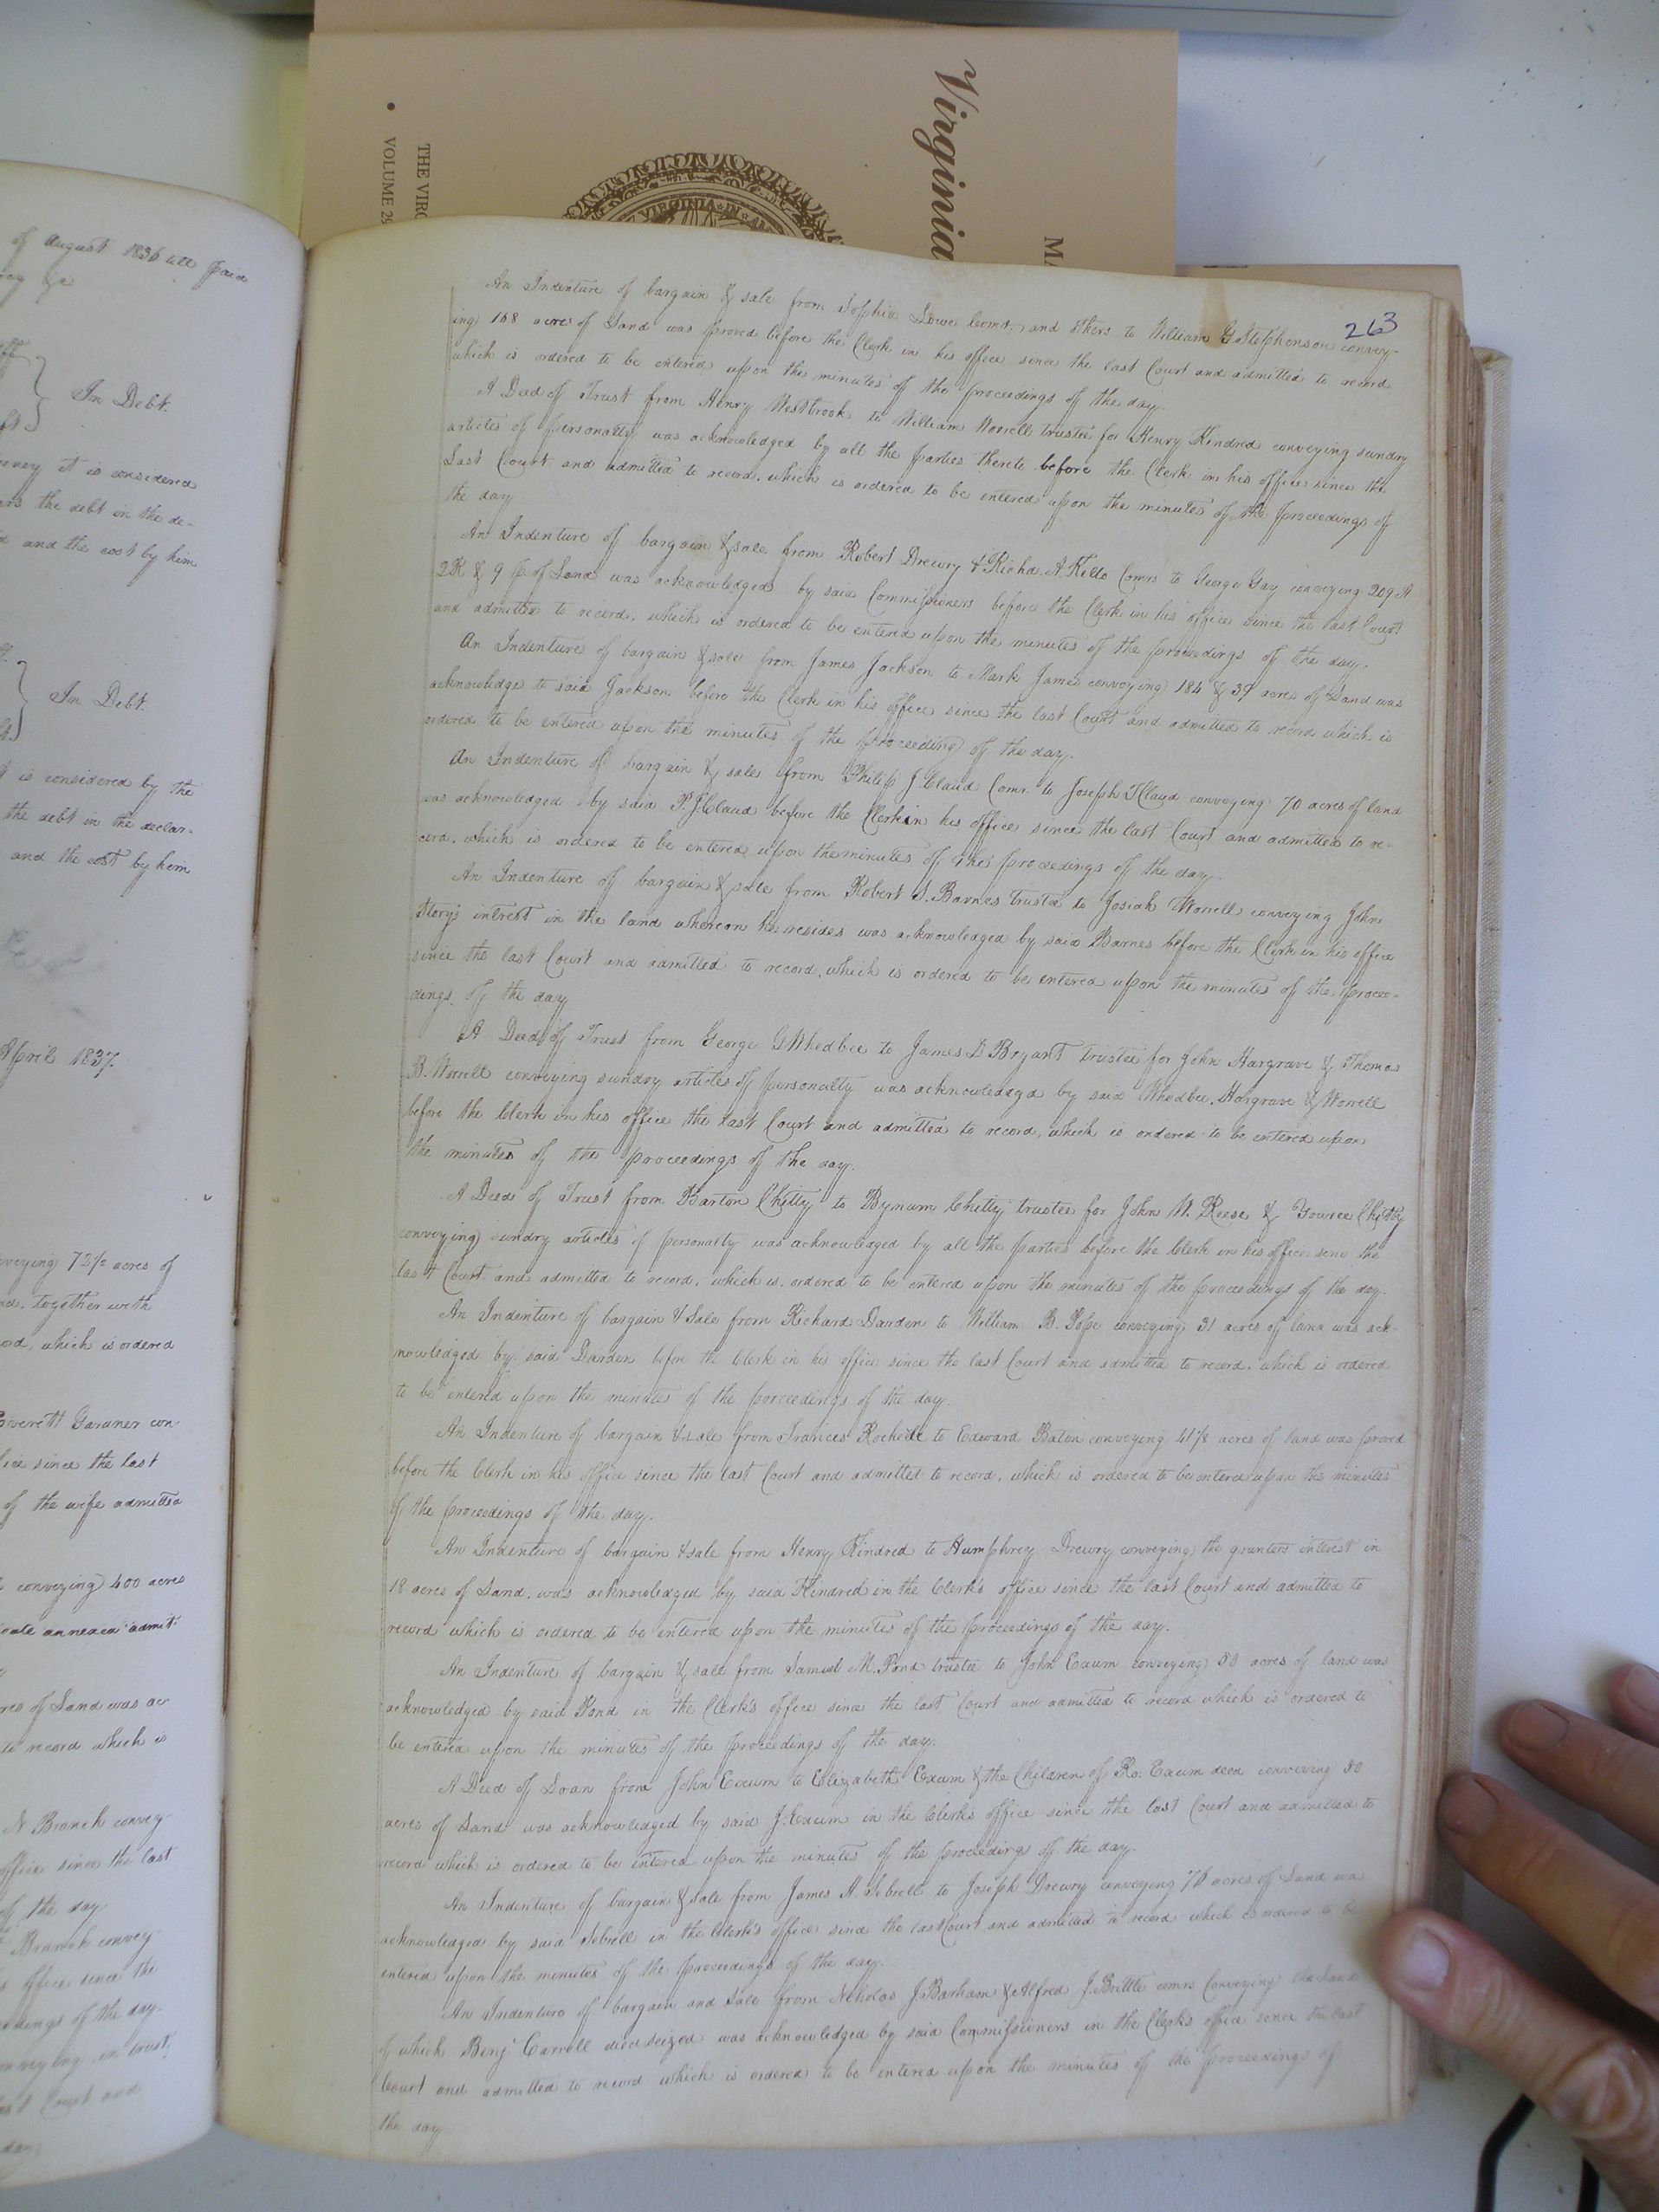 Virginia
THE VIRG
VOLUME 29
VIRGINIA IN
of August 1836 all paid
In Debt.
it is considered
the debt in the de-
and the cost by him
In Debt.
is considered by the
the debt in the declar-
and the cost by him
April 1837.
veying 72½ acres of
together with
which is ordered
Everett Gardner con-
since the last
of the wife admitted
conveying 400 acres
annexed admit-
of Land was ac
to record which is
N Branch convey-
office since the last
of the day.
Branch convey-
office since the
of the day.
in trust
Court and
263
An Indenture of bargain & sale from Sophia Lowe Comr. and others to William G Stephenson convey-
ing 168 acres of Land was proved before the Clerk in his office since the last Court and admitted to record
which is ordered to be entered upon the minutes of the proceedings of the day.
A Deed of Trust from Henry Westbrook to William Worrell trustee for Henry Kindred conveying sundry
articles of personalty was acknowledged by all the parties thereto before the Clerk in his office since the
Last Court and admitted to record, which is ordered to be entered upon the minutes of the proceedings of
the day
An Indenture of bargain & sale from Robert Drewry & Richd. A. Kello Comrs to George Gay conveying 209 A
2R & 9 p. of Land was acknowledged by said Commissioners before the Clerk in his office since the last Court
and admitted to record, which is ordered to be entered upon the minutes of the proceedings of the day.
An Indenture of bargain & sale from James Jackson to Mark James conveying 184 & 39 acres of Land was
acknowledge to said Jackson before the Clerk in his office since the last Court and admitted to record which is
ordered to be entered upon the minutes of the proceeding of the day.
An Indenture of bargain & sale from Philip J Claud Comr. to Joseph Claud conveying 70 acres of land
was acknowledged by said P. J. Claud before the Clerk in his office since the last Court and admitted to re-
cord, which is ordered to be entered upon the minutes of the proceedings of the day.
An Indenture of bargain & sale from Robert S. Barnes trustee to Josiah Worrell conveying John
Story's interest in the land whereon he resides was acknowledged by said Barnes before the Clerk in his office
since the last Court and admitted to record, which is ordered to be entered upon the minutes of the procee-
dings of the day
A Deed of Trust from George G Whedbee to James D Bryant trustee for John Hargrave & Thomas
B. Worrell conveying sundry articles of personalty was acknowledged by said Whedbee, Hargrave & Worrell
before the Clerk in his office the last Court and admitted to record, which is ordered to be entered upon
the minutes of the proceedings of the day.
A Deed of Trust from Barton Chitty to Bynum Chitty trustee for John W. Reese & Chitty
conveying sundry articles of personalty was acknowledged by all the parties before the Clerk in his office since the
last Court and admitted to record, which is ordered to be entered upon the minutes of the proceedings of the day.
An Indenture of bargain & Sale from Richard Darden to William B. Pope conveying 31 acres of land was ack-
nowledged by said Darden before the Clerk in his office since the last Court and admitted to record, which is ordered
to be entered upon the minutes of the proceedings of the day.
An Indenture of bargain & sale from Frances Rochelle to Edward Baton conveying 41⅞ acres of land was proved
before the Clerk in his office since the last Court and admitted to record, which is ordered to be entered upon the minutes
of the proceedings of the day.
An Indenture of bargain & sale from Henry Kindred to Humphrey Drewry conveying the grantors interest in
18 acres of Land, was acknowledged by said Kindred in the Clerk's office since the last Court and admitted to
record which is ordered to be entered upon the minutes of the proceedings of the day.
An Indenture of bargain & sale from Samuel M. Pond trustee to John Exum conveying 50 acres of land was
acknowledged by said Pond in the Clerk's office since the last Court and admitted to record which is ordered to
be entered upon the minutes of the proceedings of the day.
A Deed of Loan from John Exum to Elizabeth Exum & the Children of Ro. Exum decd conveying 50
acres of Land was acknowledged by said J. Exum in the Clerk's office since the last Court and admitted to
record which is ordered to be entered upon the minutes of the proceedings of the day.
An Indenture of bargain & sale from James H. Sebrell to Joseph Drewry conveying 76 acres of Land was
acknowledged by said Sebrell in the Clerk's office since the last Court and admitted to record which is ordered to be
entered upon the minutes of the proceedings of the day.
An Indenture of bargain and sale from Nicholas J Barham & Alfred J. Brittle comrs Conveying the Land
of which Benj Carroll died seized was acknowledged by said Commissioners in the Clerks office since the last
Court and admitted to record which is ordered to be entered upon the minutes of the proceedings of
the day